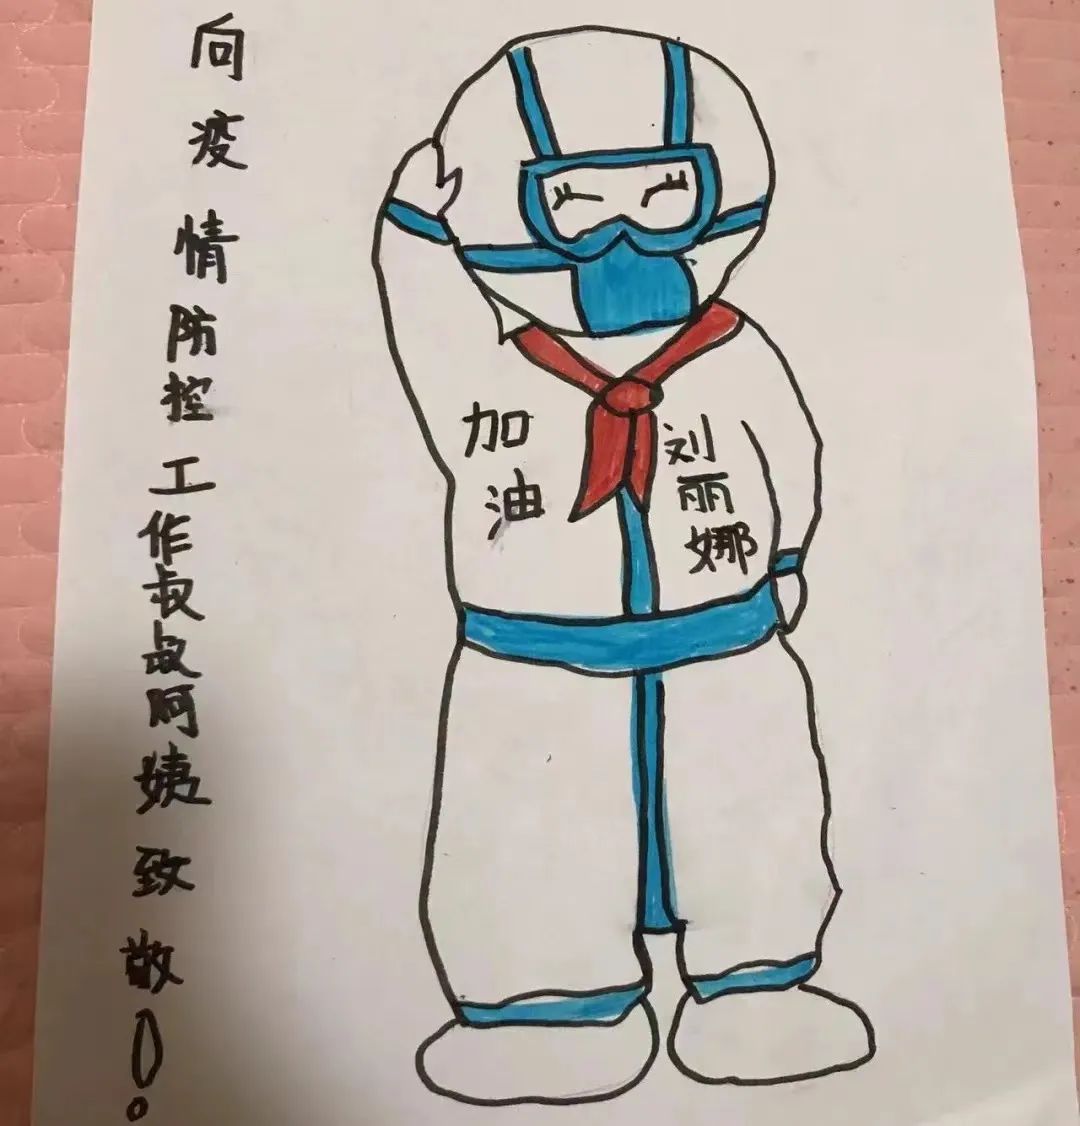 向疫情防控工作叔叔阿姨致敬!
加油
刘丽娜